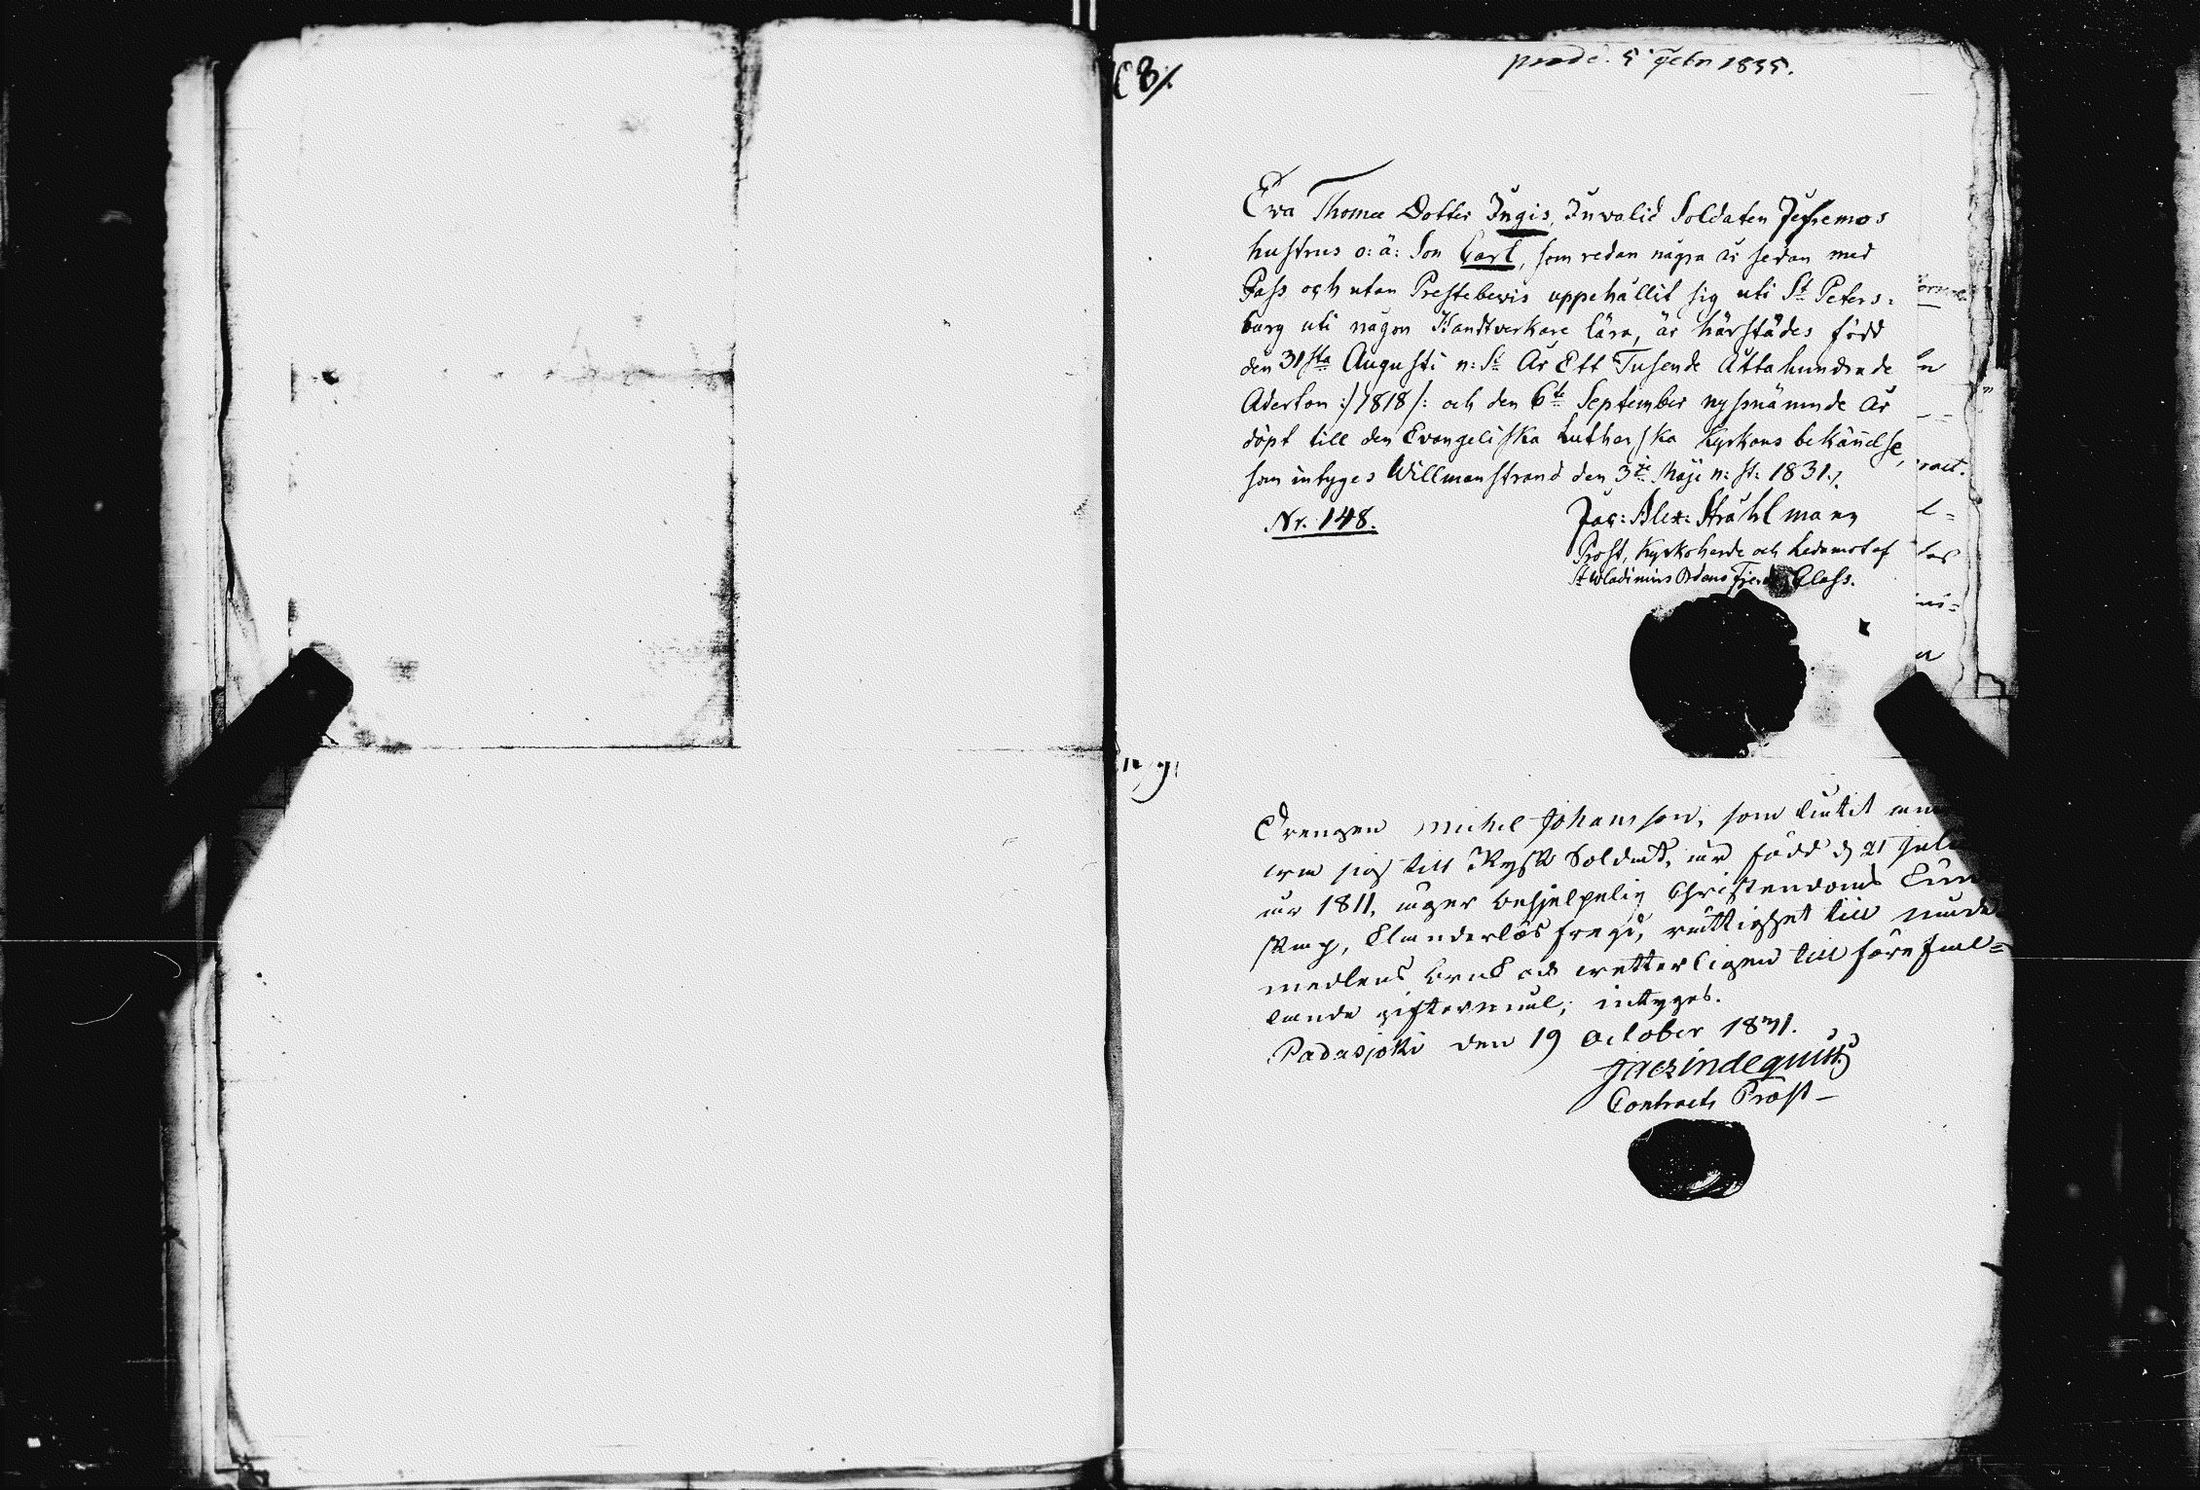 C 8/.
prod: 5 Febr 1835.
Ewa Thomæ Dotter Ingis, Inwalid Soldaten Jefremos
hustrus o: ä: Son Carl, som redan några år sedan med
Pass och utan Prestebewis uppehållit sig uti St Peters:
burg uti någon Handtverkare lära, är härstädes född
den 31sta Augusti n: St År Ett Tusende Åttahundrade
Aderton :/1818/: och den 6te September nyssnämnde År
döpt till den Evangeliska Lutherska Kyrkans bekännelse,
som intyges Willmanstrand den 3je Maji n: st: 1831./.
Nr. 148.
Jac: Alex: Strahlmann
Prost, Kyrkoherde och Ledamot af
St Wladimirs Ordens Fjerde Class.
Drengen Michel Johansson, som
sig till Rysk Soldat, är född d 21
år 1811, äger behjelpelig Christendoms
skap, Clanderlös fregd, rättighet till nåde
medlens bruk och till förefal=
lande giftermål; intyges.
Padasjoki den 19 October 1831.
Contracts Prost